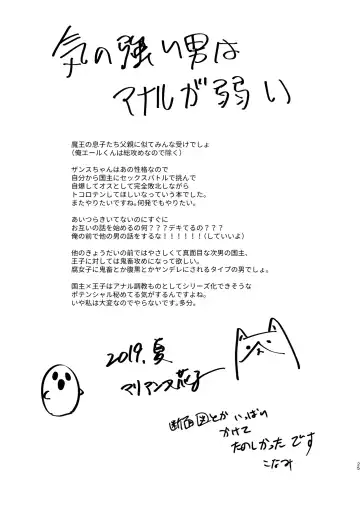 気の強い男は
アナルが弱い
魔王の息子たち父親に似てみんな受けでしょ
（俺エールくんは総攻めなので除く）
ザンスちゃんはあの性格なので
自分から国主にセックスバトルで挑んで
自爆してオスとして完全敗北しながら
トコロテンしてほしいなっていう本でした。
またやりたいですね。何発でもやりたい。
あいつらきいてないのにすぐに
お互いの話を始めるの何？？？デキてるの？？？
俺の前で他の男の話をするな！！！！！！（していいよ）
他のきょうだいの前ではやさしくて真面目な次男の国主、
王子に対しては鬼畜攻めになって欲しい。
腐女子に鬼畜とか腹黒とかヤンデレにされるタイプの男でしょ。
国主×王子はアナル調教ものとしてシリーズ化できそうな
ポテンシャル秘めてる気がするんですよね。
いや私は大変なのでやらないです。多分。
2019.夏
マリアンヌ荒子
断面図とかいっぱい
かけて
たのしかったです
こなみ